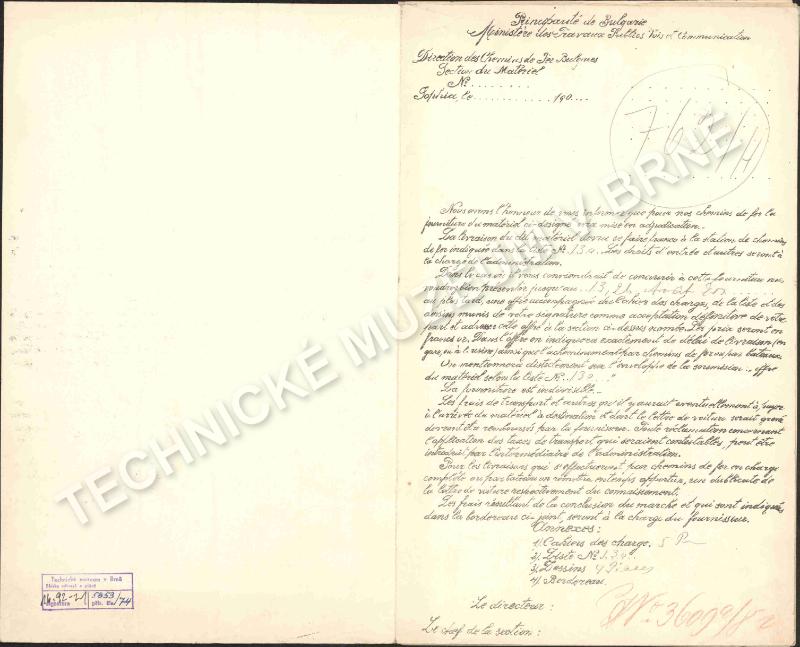 Principauté de Bulgarie
Ministère des Travaux Publics Voies et Communication
Direction des Chemins de Fer Bulgares
Section du Matériel
No. ........
Sophia, le ............ 190...
Nous avons l'honneur de vous informer que pour nos chemins de fer la
fourniture du matériel ci-désigné sera mise en adjudication.
La livraison du dit matériel devra se faire franco à la station de chemins
de fer indiquée dans la liste No. 134. Les droits d'entrée et autres seront à
la charge de l'administration.
Dans le cas où il vous conviendrait de concourir à cette fourniture
voudrez bien présenter jusqu'au 13/21
au plus tard, une offre accompagnée du cahier des charges, de la liste et des
dessins munis de votre signature comme acceptation définitive de votre
part et adresser cette offre à la section ci-dessus nommée. Les prix seront en
francs or. Dans l'offre on indiquera exactement le délai de livraison (en
gare, ou à l'usine) ainsi que l'acheminement par chemins de fer ou par bateaux.
On mentionnera distinctement sur l'enveloppe de la soumission "offre
du matériel selon la liste No. 134"
La fourniture est indivisible.
Les frais de transport et autres qu'il y aurait eventuellement à payer
à l'arrivée du matériel à destination et dont la lettre de voiture serait grevée
devront être remboursés par le fournisseur. Toute réclamation concernant
l'application des taxes de transport, qui seraient contestables, peut être
introduit par l'intermédiaire de l'administration.
Pour les livraisons qui s'effectueront par chemins de fer en charge
complète ou par bateau on remettra
la lettre de voiture respectivement du connaissement.
Les frais résultant de la conclusion du marché et qui sont indiqués
dans la bordereau ci-joint, seront à la charge du fournisseur.
Annexes:
1) Cahiers des charge. 5
2) Liste No. 134
3) Dessins 4 Pièces
4) Bordereau.
Le directeur:
Le chef de la section:
No: 36099/82
Technické museum v Brně
14.92-21
signatura
5853/74
přír. číslo
TECHNICKÉ MUZEUM V BRNĚ